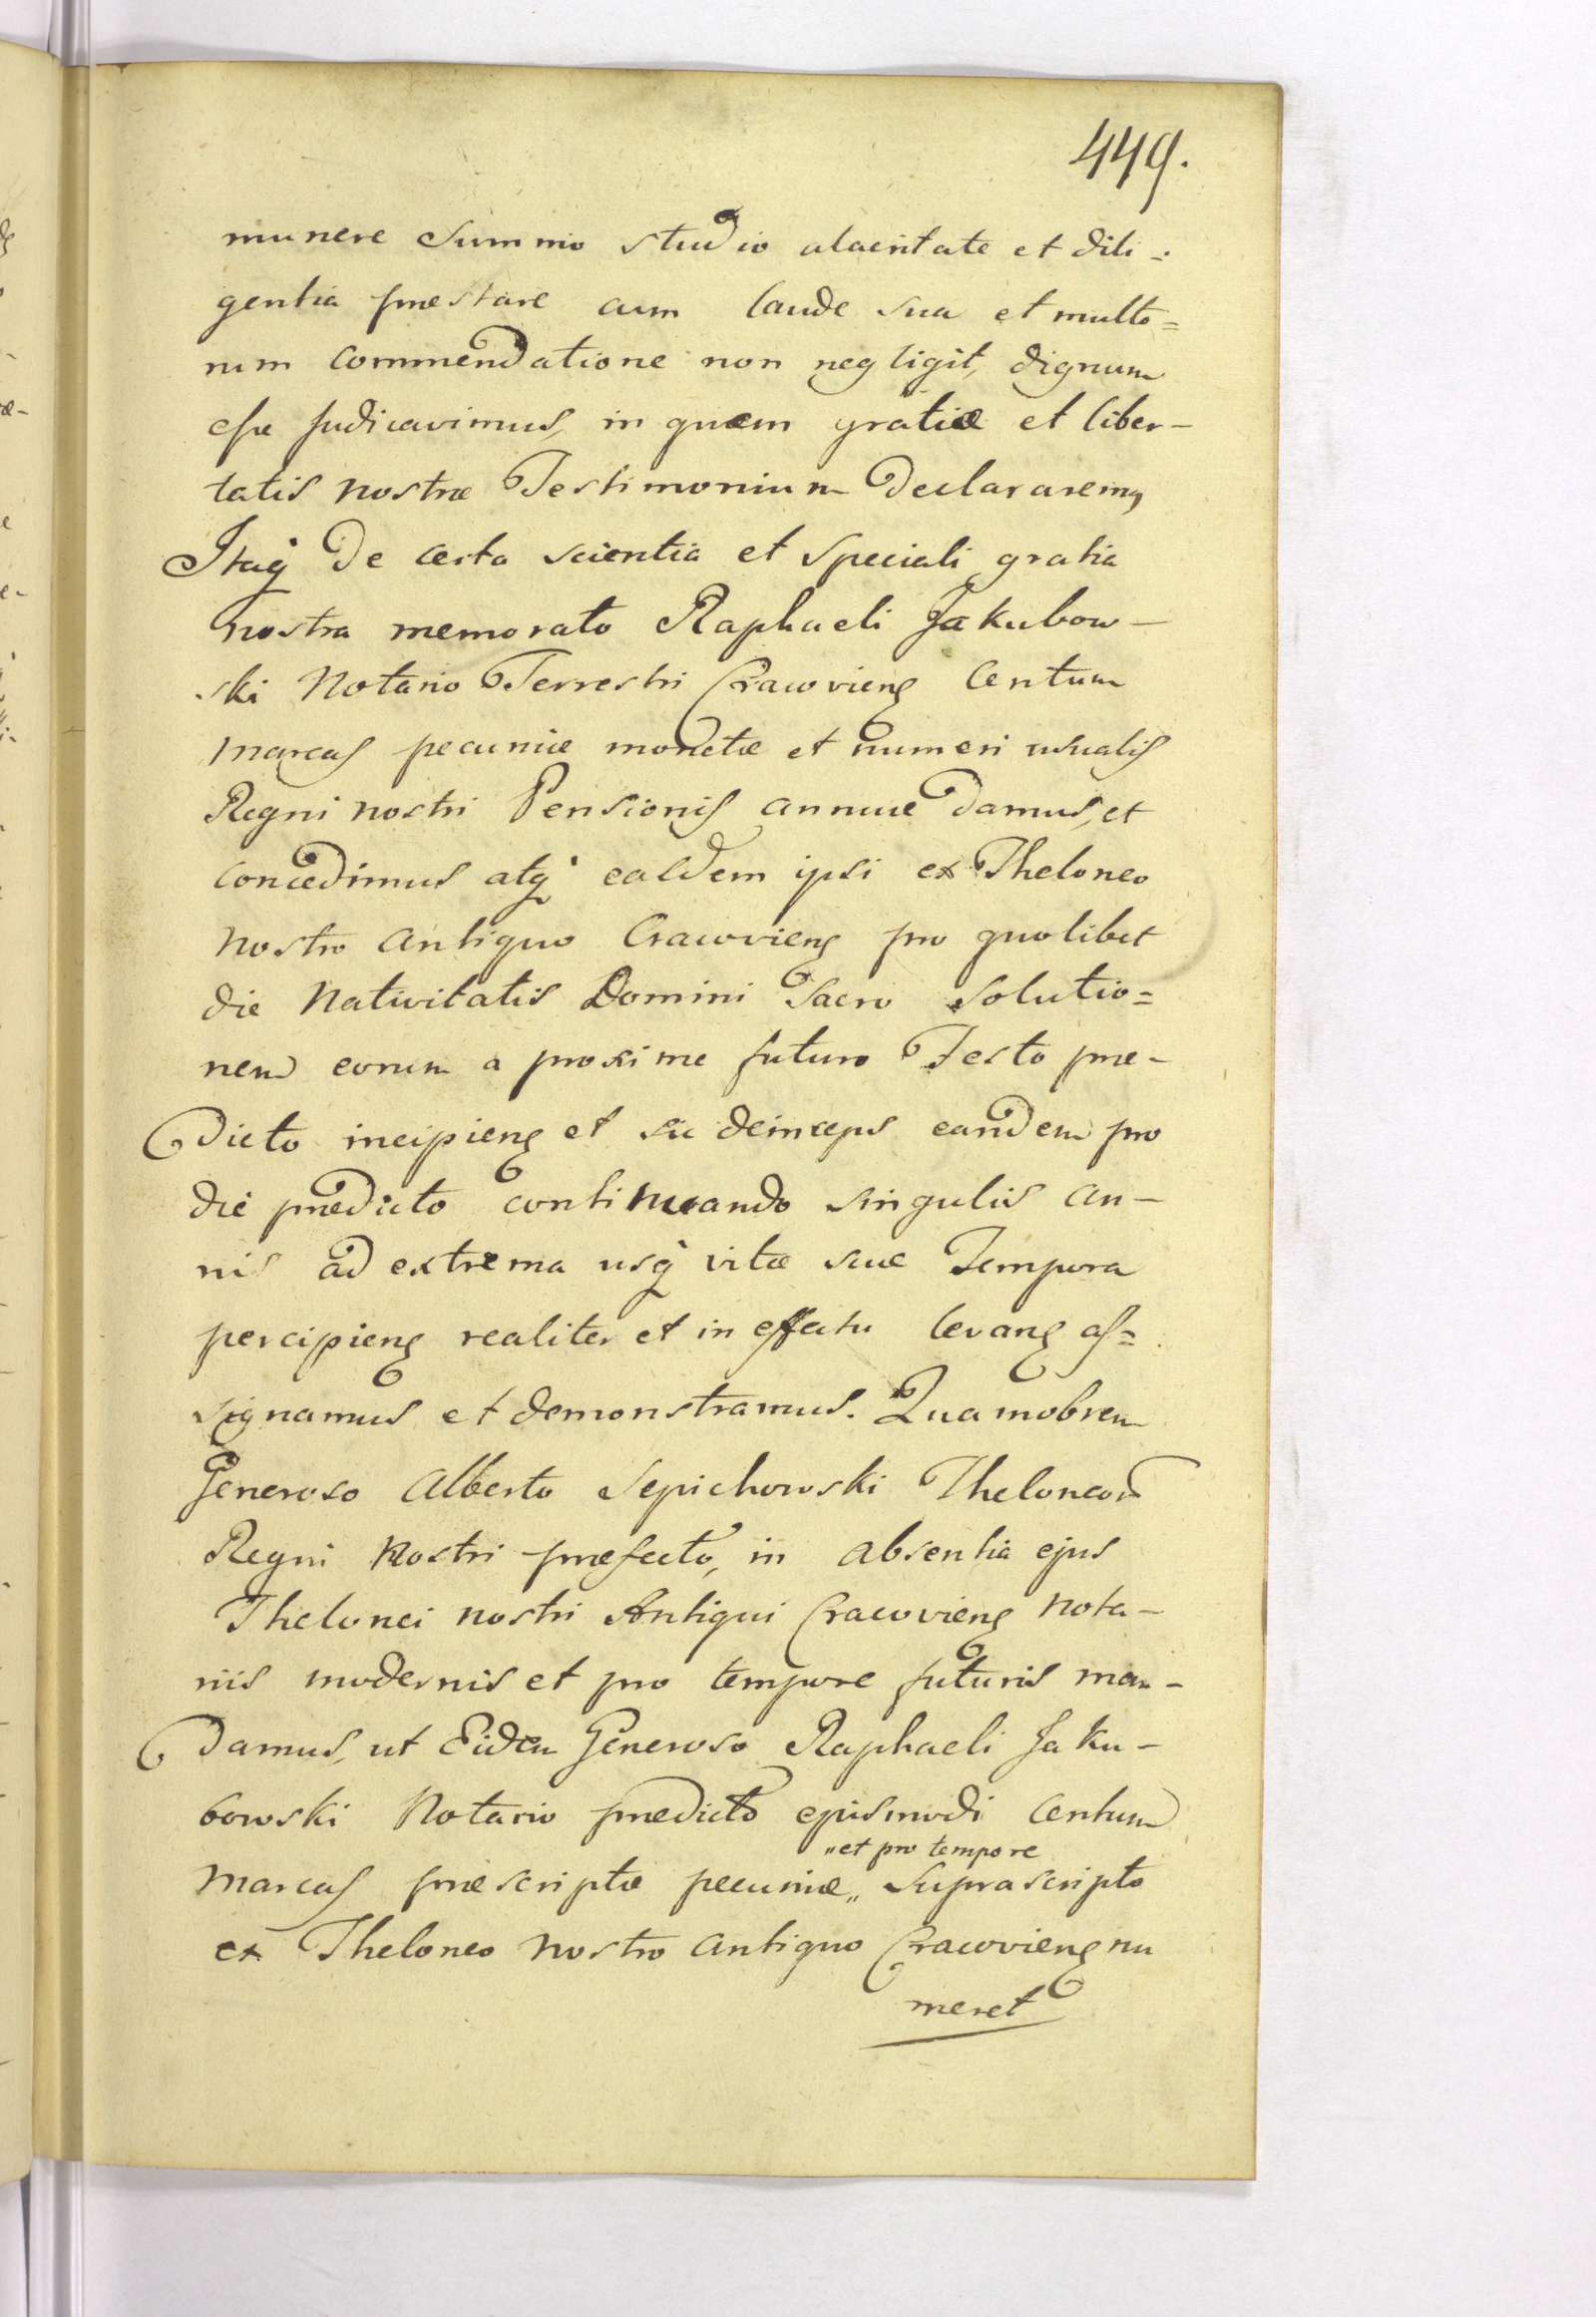 449.
munere summo studio alacritate et dili-
gentia præstare cum laude sua et multo=
rum commendatione non negligit, dignum
esse judicavimus, in quem gratiæ et liber-
tatis nostræ Testimonium declararemq
Itaq de certa scientia et speciali gratia
nostra memorato Raphaeli Jakubow-
ski Notario Terrestri Cracovieng Centum
marcas pecuniæ monetæ et numeri usualis
Regni nostri Pensionis annuæ damus, et
concedimus atq easdem ipsi ex Theloneo
nostro antiquo Cracovieng pro quolibet
die Nativitatis Domini sacro solutio=
nem eorum a proxime futuro Festo præ-
dicto incipieng et sic deinceps eandem pro
die prædicto continuando singulis an-
nis ad extrema usq vitæ suæ Tempora
percipieng realiter et in effectu levang as=
signamus et demonstramus. Quamobrem
Generoso Alberto Sepichowski Theloneorum
Regni Nostri præfecto, in absentia ejus
Thelonei nostri Antiqui Cracovieng nota-
riis modernis et pro tempore futuris man-
damus, ut Eidem Generoso Raphaeli Jaku-
bowski Notario prædicto ejusmodi Centum
„et pro tempore
marcas præscriptæ pecuniæ„ suprascripto
ex Theloneo nostro antiquo Cracovieng nu
meret